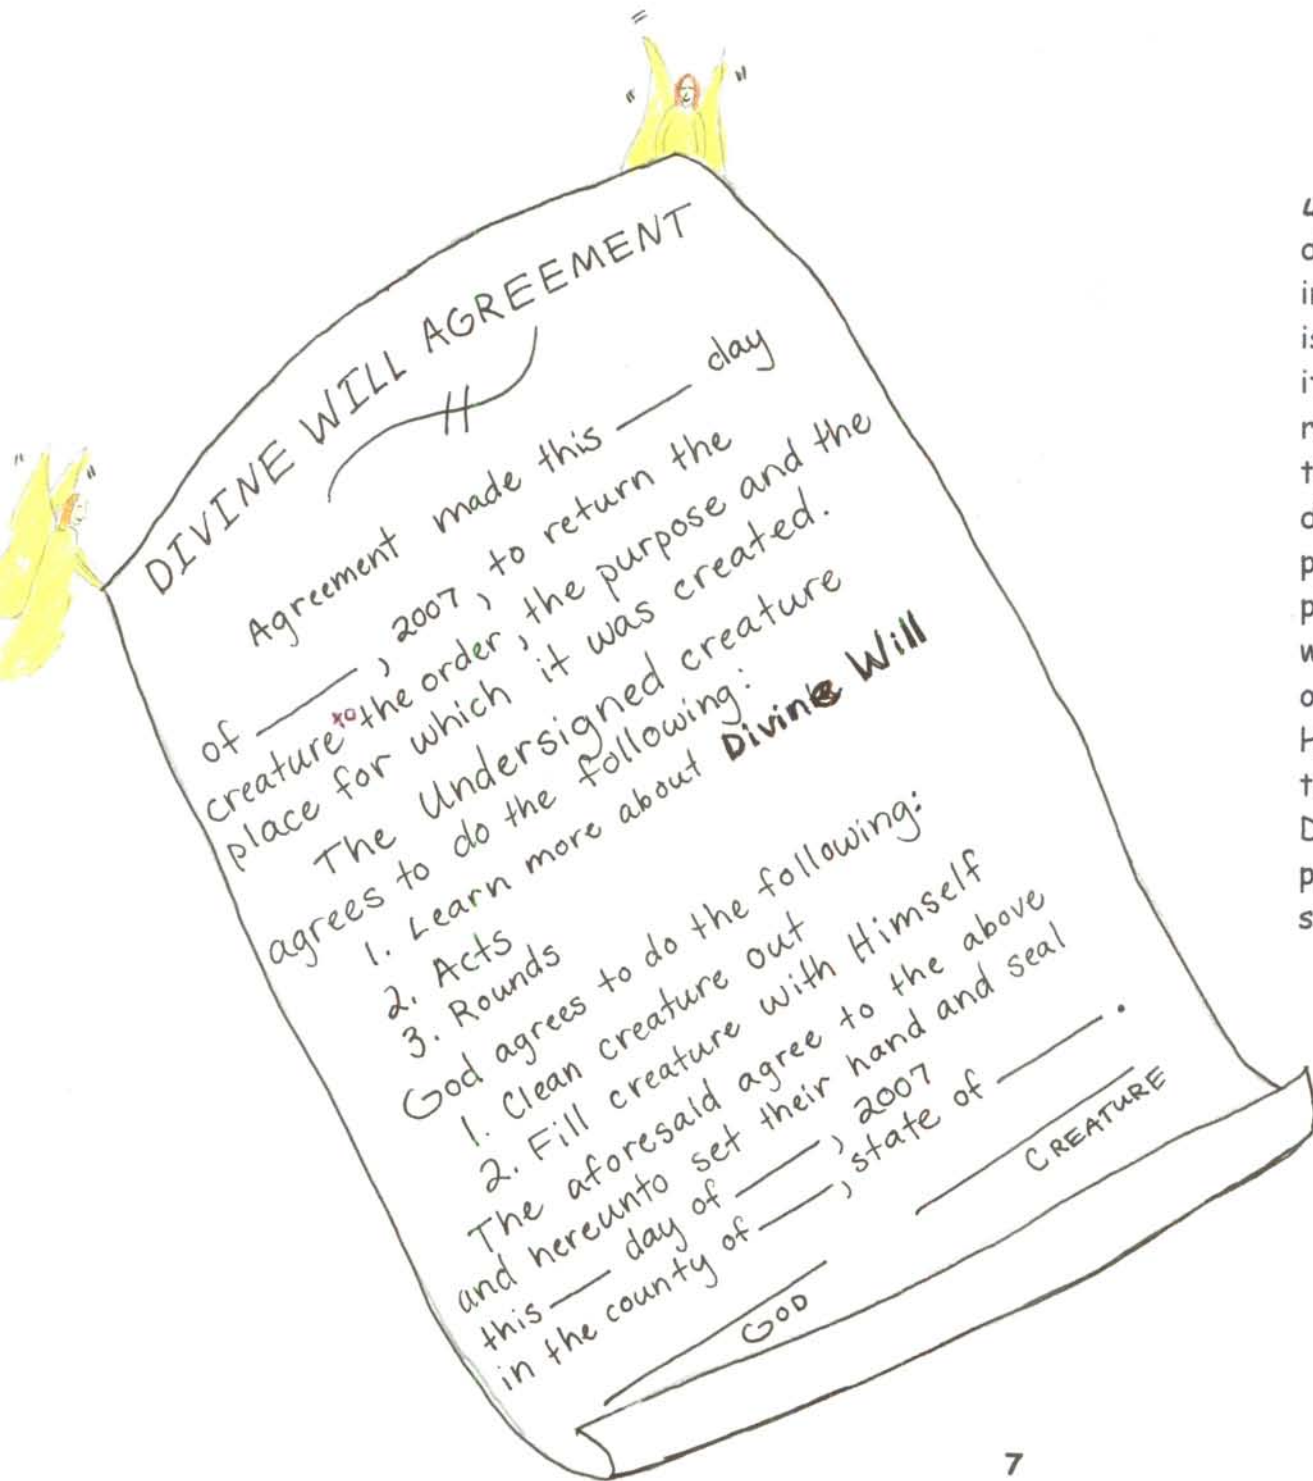 DIVINE WILL AGREEMENT
Agreement made this ___ day
of ___, 2007, to return the
creature to the order, the purpose and the
place for which it was created.
The Undersigned creature
agrees to do the following:
1. Learn more about Divine Will
2. Acts
3. Rounds
God agrees to do the following:
1. Clean creature out
2. Fill creature with Himself
The aforesaid agree to the above
and hereunto set their hand and seal
this ___ day of ___, 2007
in the county of ___, state of ___.
CREATURE
GOD
7